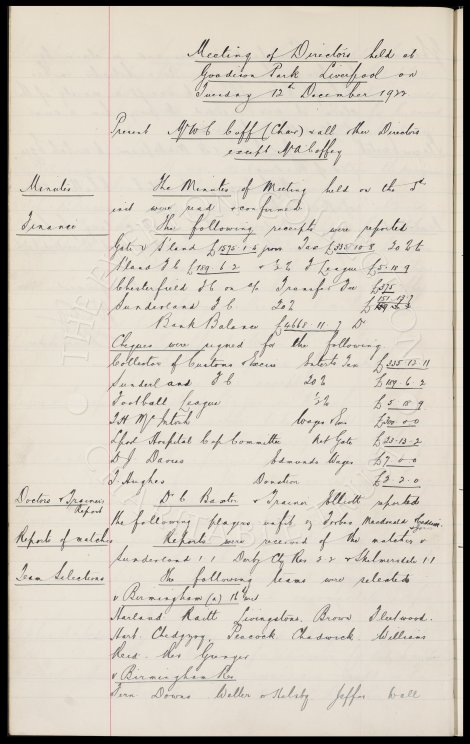 Meeting of Directors held at
Goodison Park Liverpool on
Tuesday 12th December 1922
Present Mr W C Cuff (Chair) & all other Directors
except Mr A Coffey
Minutes
The Minutes of Meeting held on the 5th
inst were read & confirmed
Finance
The following receipts were reported
Gate & Stand £1575.1.6 from Tax £335.10.8 20% to
Sunderland F C £189.6.2 & ½% F League £5.18.9
Chesterfield F C on a/c Transfer Fee £375
Sunderland F C 20% £151.19.7
Bank Balance £4665.11.7 D
Cheques were signed for the following
Collector of Customs & Excise Enterts Tax £335.13.11
Sunderland F C 20% £189.6.2
Football League ½% £5.18.9
T H McIntosh Wages &c £300.0.0
Lpool Hospital Cup Committee Net Gate £33.13.2
D J Davies Edmunds Wages £7.0.0
T. Hughes Donation £2.2.0
Doctors & Trainers
Report
Dr C Baxter & Trainer Elliott reported
the following players unfit of Forbes Macdonald
Reports of matches
Reports were received of the matches v
Sunderland 1.1 Derby Cty Res 2.2 & Skelmersdale 1.1
Team Selections
The following teams were selected
v Birmingham (a) 16th inst
Harland Raitt Livingstone Brown Fleetwood.
Hart. Chedgzoy, Peacock Chadwick Williams
Reid. Res Grenyer
v Birmingham Res
Fern Downs Weller & Kelsby Jeffs Wall